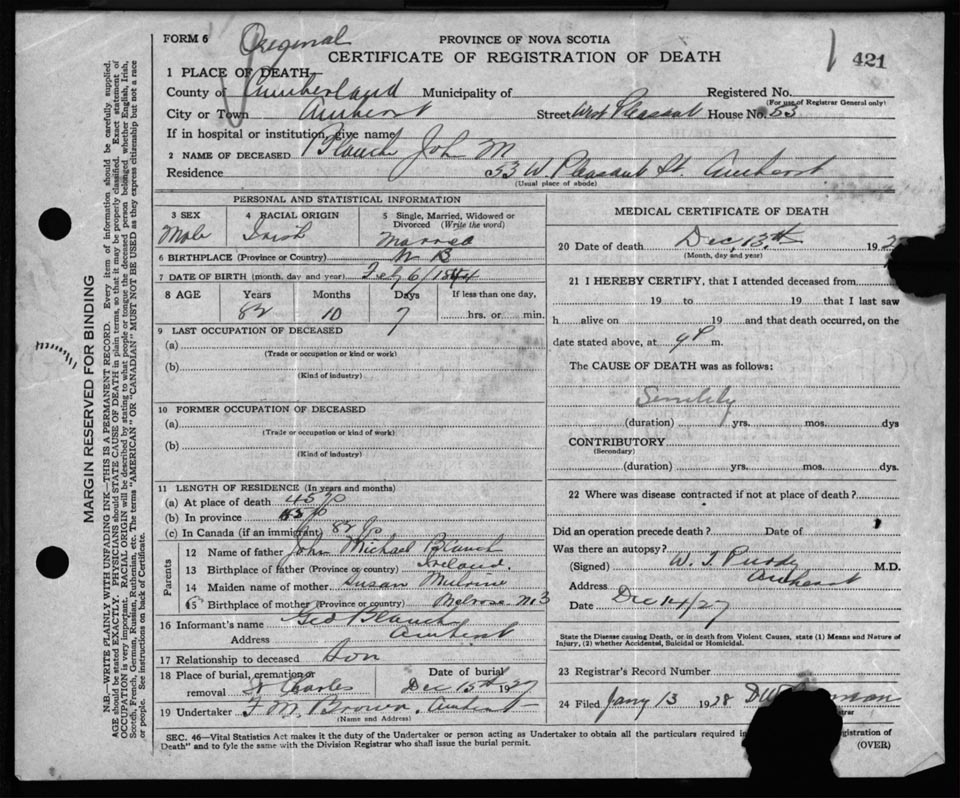 FORM 6
Original
PROVINCE OF NOVA SCOTIA
CERTIFICATE OF REGISTRATION OF DEATH
421
1 PLACE OF DEATH—
County of Cumberland Municipality of Registered No.
(For use of Registrar General only)
City or Town Amherst Street West Pleasant House No. 53
If in hospital or institution, give name
2 NAME OF DECEASED Blanch John M
Residence 53 W. Pleasant St. Amherst
(Usual place of abode)
PERSONAL AND STATISTICAL INFORMATION
3 SEX
Male
4 RACIAL ORIGIN
Irish
5 Single, Married, Widowed or
Divorced (Write the word)
6 BIRTHPLACE (Province or Country) N B
7 DATE OF BIRTH (month, day and year) Feby 6/1844
8 AGE Years Months Days If less than one day,
82 10 7 hrs. or min.
9 LAST OCCUPATION OF DECEASED
(a)
(Trade or occupation or kind or work)
(b)
(Kind of industry)
10 FORMER OCCUPATION OF DECEASED
(a)
(Trade or occupation or kind of work)
(b)
(Kind of industry)
11 LENGTH OF RESIDENCE (In years and months)
(a) At place of death 45 yo
(b) In province
(c) In Canada (if an immigrant) 82 yo
Parents
12 Name of father John Michael Blanch
13 Birthplace of father (Province or country) Ireland.
14 Maiden name of mother Susan
15 Birthplace of mother (Province or country) Melrose NB
16 Informant's name Geo Blanch
Address Amherst
17 Relationship to deceased Son
18 Place of burial, cremation or
removal St Charles
Date of burial
Dec 15th 1927
19 Undertaker F. M. Brown. Amherst
(Name and Address)
MEDICAL CERTIFICATE OF DEATH
20 Date of death Dec 13th 192
(Month, day and year)
21 I HEREBY CERTIFY, that I attended deceased from
19 to 19 that I last saw
h alive on 19 and that death occurred, on the
date stated above, at 9 P m.
The CAUSE OF DEATH was as follows:
Senility
(duration) yrs. mos. dys
CONTRIBUTORY
(Secondary)
(duration) yrs. mos. dys.
22 Where was disease contracted if not at place of death?
Did an operation precede death? Date of
Was there an autopsy?
(Signed) W. T. Purdy M.D.
Address Amherst
Date Dec 14/27
State the Disease causing Death, or in death from Violent Causes, state (1) Means and Nature of
Injury, (2) whether Accidental, Suicidal or Homicidal.
23 Registrar's Record Number
24 Filed Jany 13 1928
SEC. 46—Vital Statistics Act makes it the duty of the Undertaker or person acting as Undertaker to obtain all the particulars required in Registration of
Death" and to fyle the same with the Division Registrar who shall issue the burial permit.
(OVER)
MARGIN RESERVED FOR BINDING
N.B.—WRITE PLAINLY WITH UNFADING INK—THIS IS A PERMANENT RECORD. Every item of information should be carefully supplied.
AGE should be stated EXACTLY. PHYSICIANS should STATE CAUSE OF DEATH in plain terms, so that it may be properly classified. Exact statement of
OCCUPATION is very important. RACIAL ORIGIN will be described by stating to what people or tongue the deceased person belonged whether English, Irish,
Scotch, French, German, Russian, Ruthenian, etc. The terms "AMERICAN" OR "CANADIAN" MUST NOT BE USED as they express citizenship but not a race
or people. See instructions on back of Certificate.